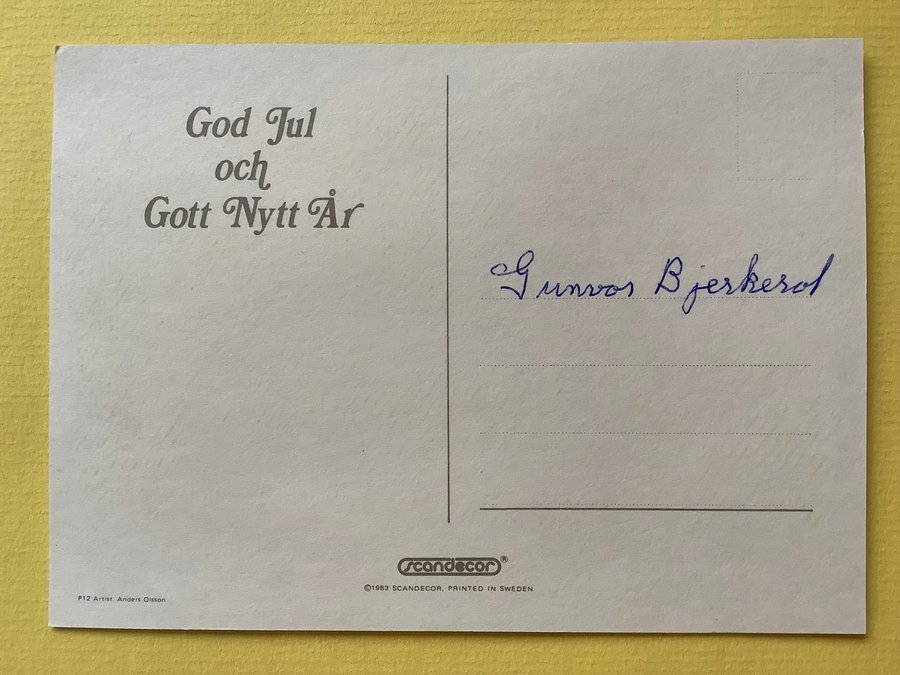 God Jul
och
Gott Nytt År
Gunvor Bjerkerol
scandecor®
©1983 SCANDECOR. PRINTED IN SWEDEN
P12 Artist. Anders Olsson